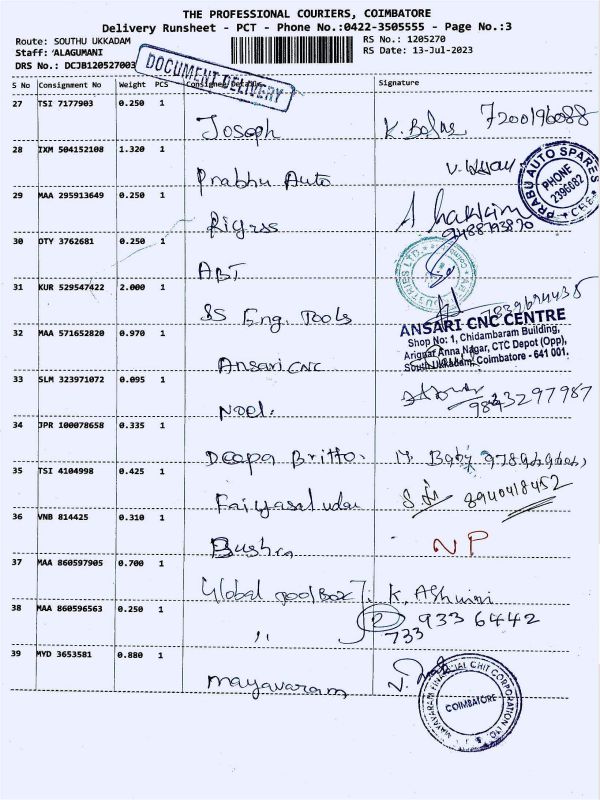 THE PROFESSIONAL COURIERS, COIMBATORE
Delivery Runsheet - PCT - Phone No.:0422-3505555 - Page No.:3
Route: SOUTHU UKKADAM
RS No.: 1205270
Staff: ALAGUMANI
RS Date: 13-Jul-2023
DRS No.: DCJB120527003
DOCUMENT DELIVERY
S No Consignment No Weight PCS Consignee Details Signature
27 TSI 7177903 0.250 1
Joseph K. 7200196088
28 IXM 504152108 1.320 1
Prabhu Auto
PRABU AUTO SPARES
PHONE
2396082
CBE
29 MAA 295913649 0.250 1
A hakkim
9488793870
30 OTY 3762681 0.250 1
ABT
31 KUR 529547422 2.000 1
SS Eng. Tools
32 MAA 571652820 0.970 1
ANSARI CNC CENTRE
Shop No: 1, Chidambaram Building,
Arignar Anna Nagar, CTC Depot (Opp),
South Ukkadam, Coimbatore - 641 001.
Ansari CNC
33 SLM 323971072 0.095 1
Noel. 9843297987
34 JPR 100078658 0.335 1
Deepa Britto.
35 TSI 4104998 0.425 1
8940418452
36 VNB 814425 0.310 1
Bushra NP
37 MAA 860597905 0.700 1
Global toolBox K. AShwini
38 MAA 860596563 0.250 1
" 9336442
733
39 MYD 3653581 0.880 1
mayavaram
MAYAVARAM FINANCIAL CHIT CORPORATION LTD
COIMBATORE